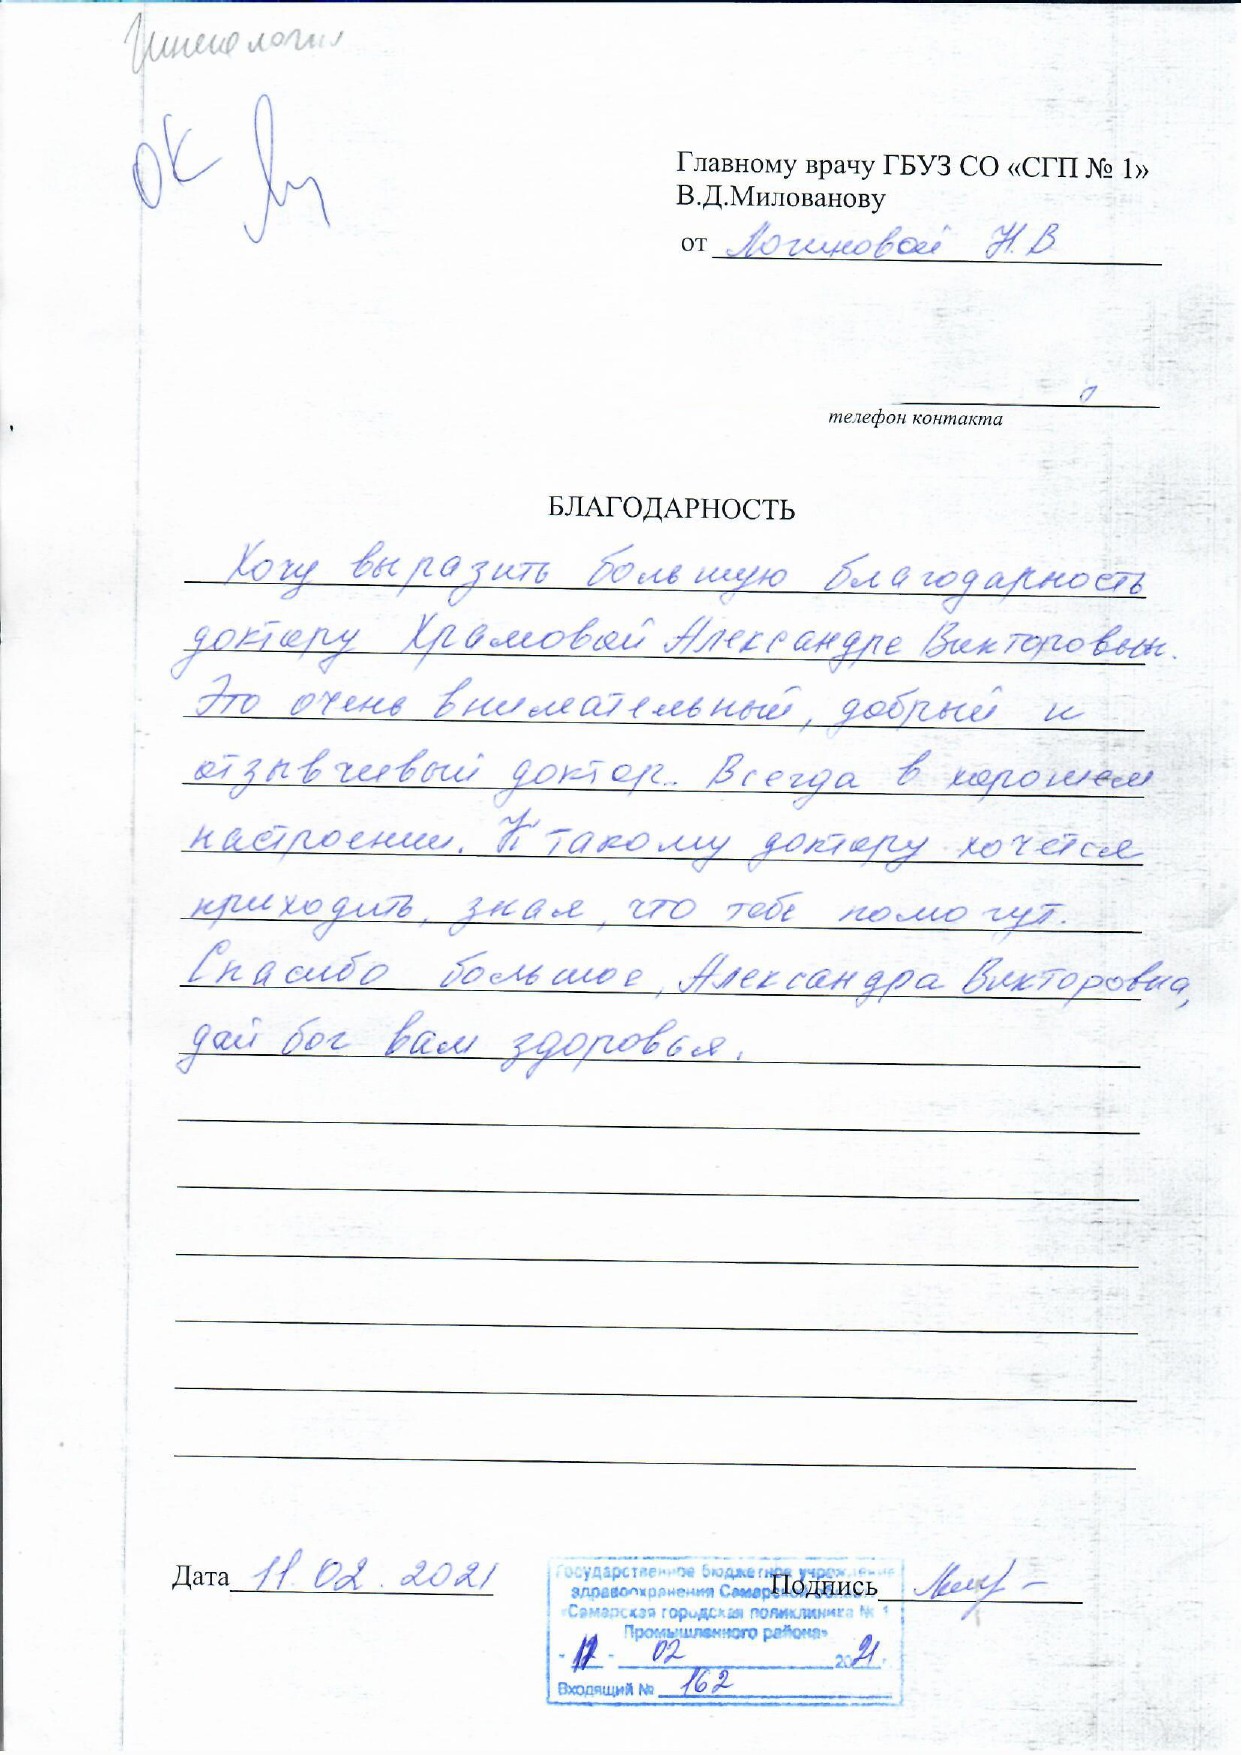 Гинекология
ОК
Главному врачу ГБУЗ СО «СГП № 1»
В.Д.Милованову
от Логиновой Н.В
телефон контакта
БЛАГОДАРНОСТЬ
Хочу выразить большую благодарность
доктору Храмовой Александре Викторовын.
Это очень внимательный, добрый и
отзывчивый доктор. Всегда в хорошем
настроении. К такому доктору хочется
приходить, зная, что тебе помогут.
Спасибо большое, Александра Викторовна,
дай бог вам здоровья.
Дата 11.02.2021
Подпись
Государственное бюджетное учреждение
здравоохранения Самарской области
«Самарская городская поликлиника № 1
Промышленного района»
02 2021 г.
Входящий № 162